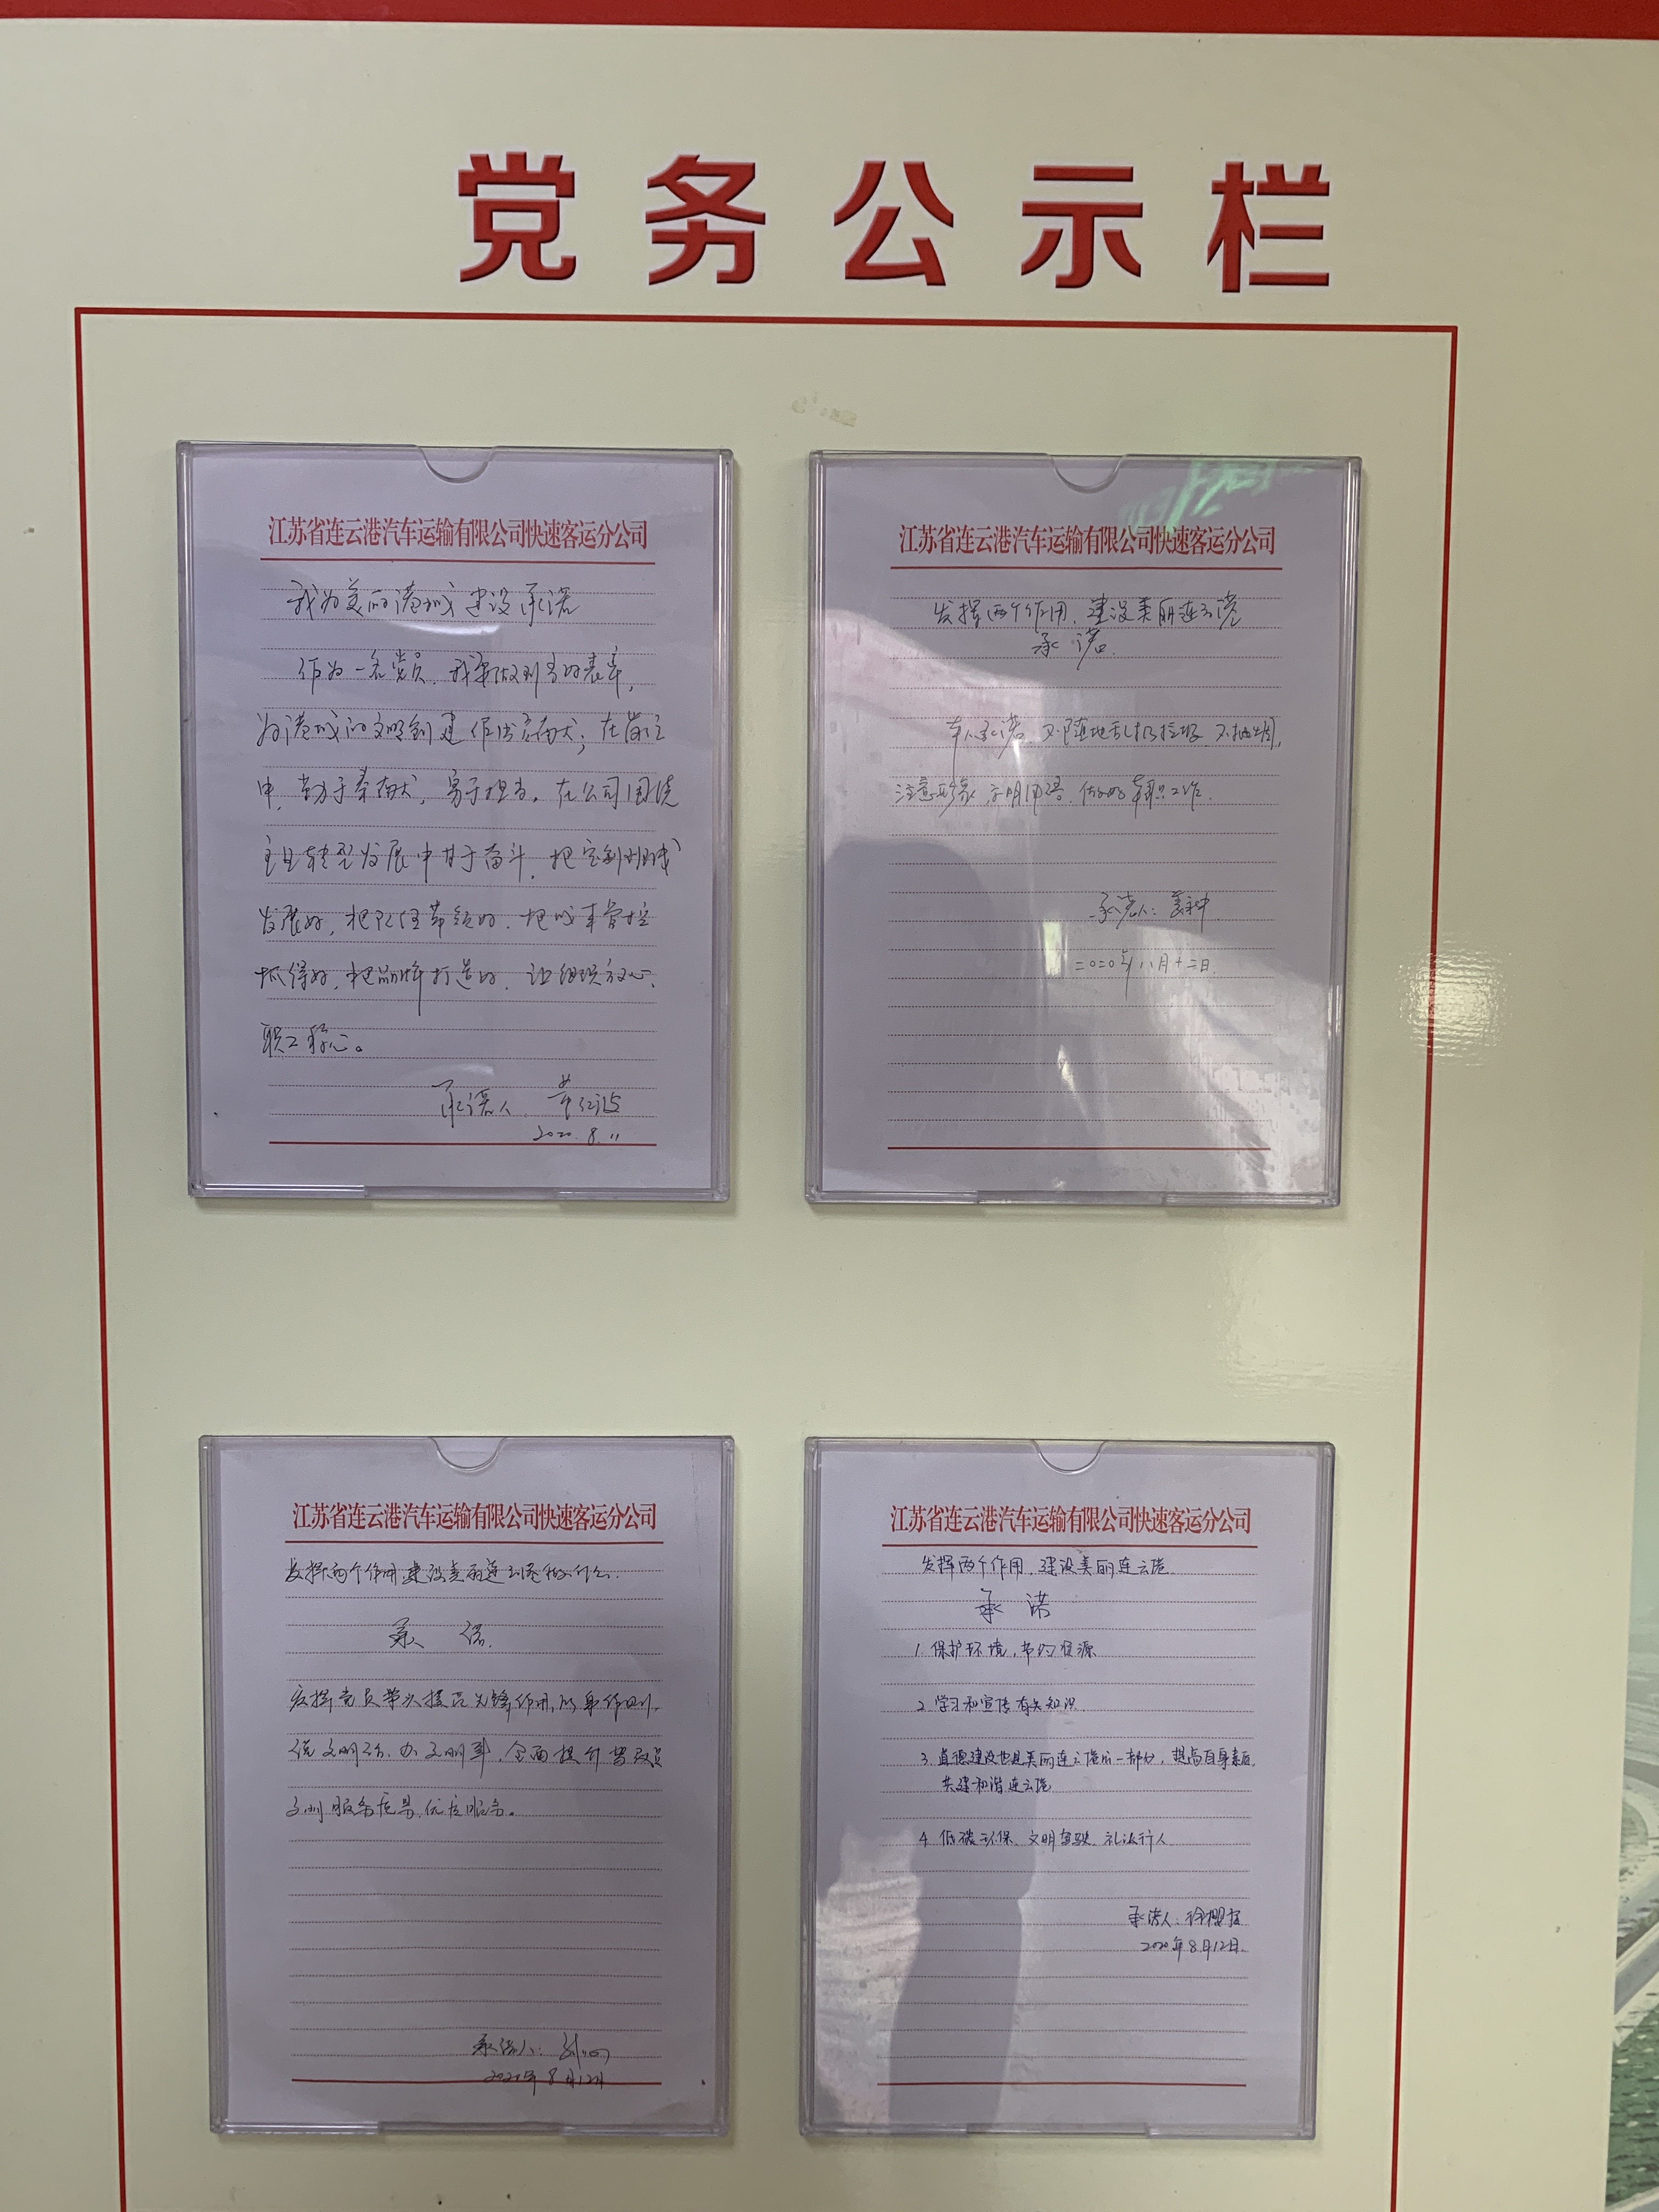 党务公示栏
江苏省连云港汽车运输有限公司快速客运分公司
我为美丽港城建设承诺
作为一名党员，我要做到当好表率，
为港城的文明创建作出贡献；在岗位
中，勤于奉献，勇于担当。在公司围绕
主业转型发展中甘于奋斗，把定制班线
发展好，把队伍带领好，把成本管控
抓得好，把品牌打造好，让组织放心、
职工称心。
承诺人
2020.8.11
江苏省连云港汽车运输有限公司快速客运分公司
发挥两个作用，建设美丽连云港
承诺
本人承诺，不随地乱扔垃圾，不抽烟，
注意形象，文明用语，做好本职工作。
承诺人：
二〇二〇年八月十二日
江苏省连云港汽车运输有限公司快速客运分公司
发挥两个作用建设美丽连云港做什么.
承诺
发挥党员带头模范先锋作用，以身作则，
说文明话，办文明事，全面提升驾驶员
文明服务质量，优质服务。
承诺人：
2020年8月12日
江苏省连云港汽车运输有限公司快速客运分公司
发挥两个作用，建设美丽连云港
承诺
1.保护环境，节约资源
2.学习和宣传有关知识
3.道德建设也是美丽连云港的一部分，提高自身素质，
共建和谐连云港
4.低碳环保，文明驾驶，礼让行人
承诺人：徐樱
2020年8月12日